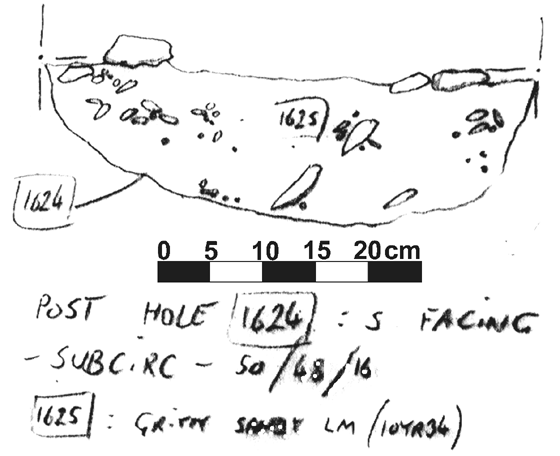 1625
1624
0 5 10 15 20 cm
POST HOLE 1624 : S FACING
- SUBCIRC - 50/48/16
1625 : GRITTY SANDY LM (10YR34)